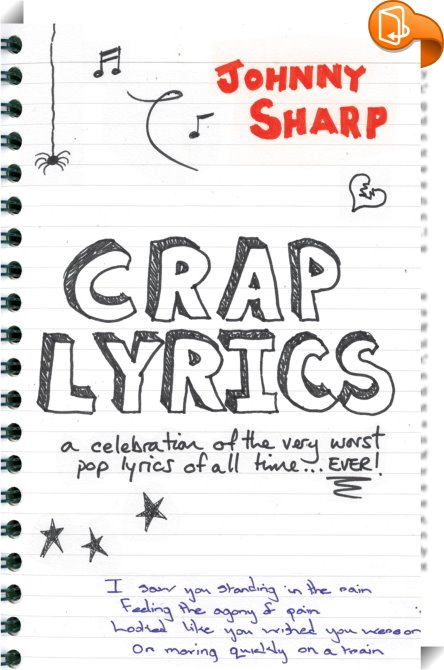 JOHNNY
SHARP
CRAP
LYRICS
a celebration of the very worst
pop lyrics of all time... EVER!
I saw you standing in the rain
Feeling the agony & pain
Looked like you wished you were
Or moving quickly on a train